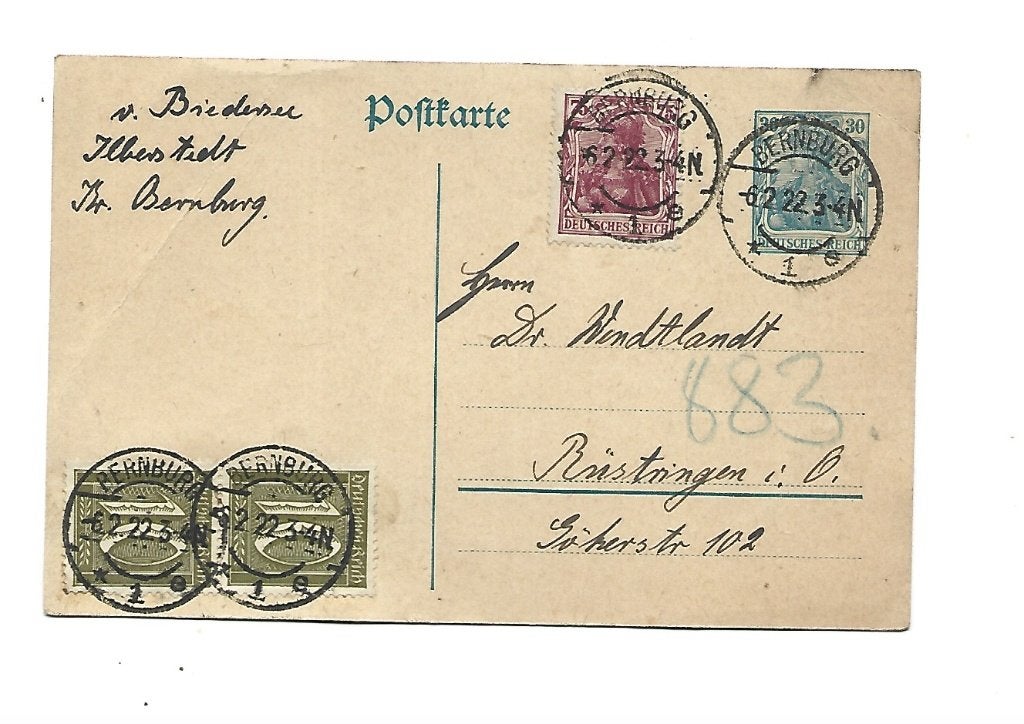 v. Biedersee
Ilberstedt
Kr. Bernburg.
Postkarte
DEUTSCHES REICH
BERNBURG
-6.2.22.3-4N
* 1 e
30 30
DEUTSCHES REICH
BERNBURG
-6.2.22.3-4N
* 1 e
Herrn
Dr. Wendtlandt
883.
Rüstringen i. O.
Gökerstr 102
10
Deutsches Reich
BERNBURG
-6.2.22.3-4N
* 1 e
10
Deutsches Reich
BERNBURG
-6.2.22.3-4N
* 1 e